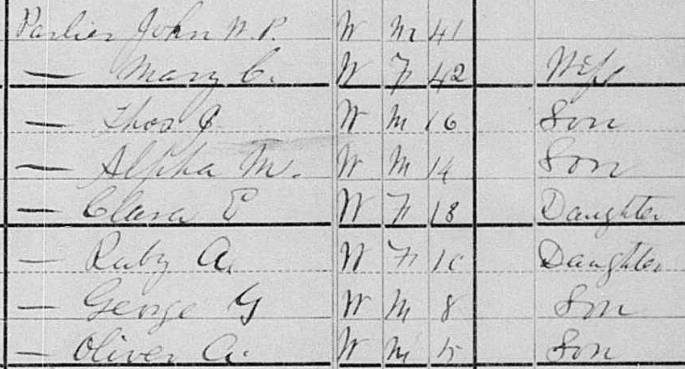 Parlier John W. P. W M 41
— Mary C. W F 42 Wife
— Thos J. W M 16 Son
— Alpha M. W M 14 Son
— Clara E W F 18 Daughter
— Ruby A. W F 10 Daughter
— George G W M 8 Son
— Oliver A. W M 5 Son